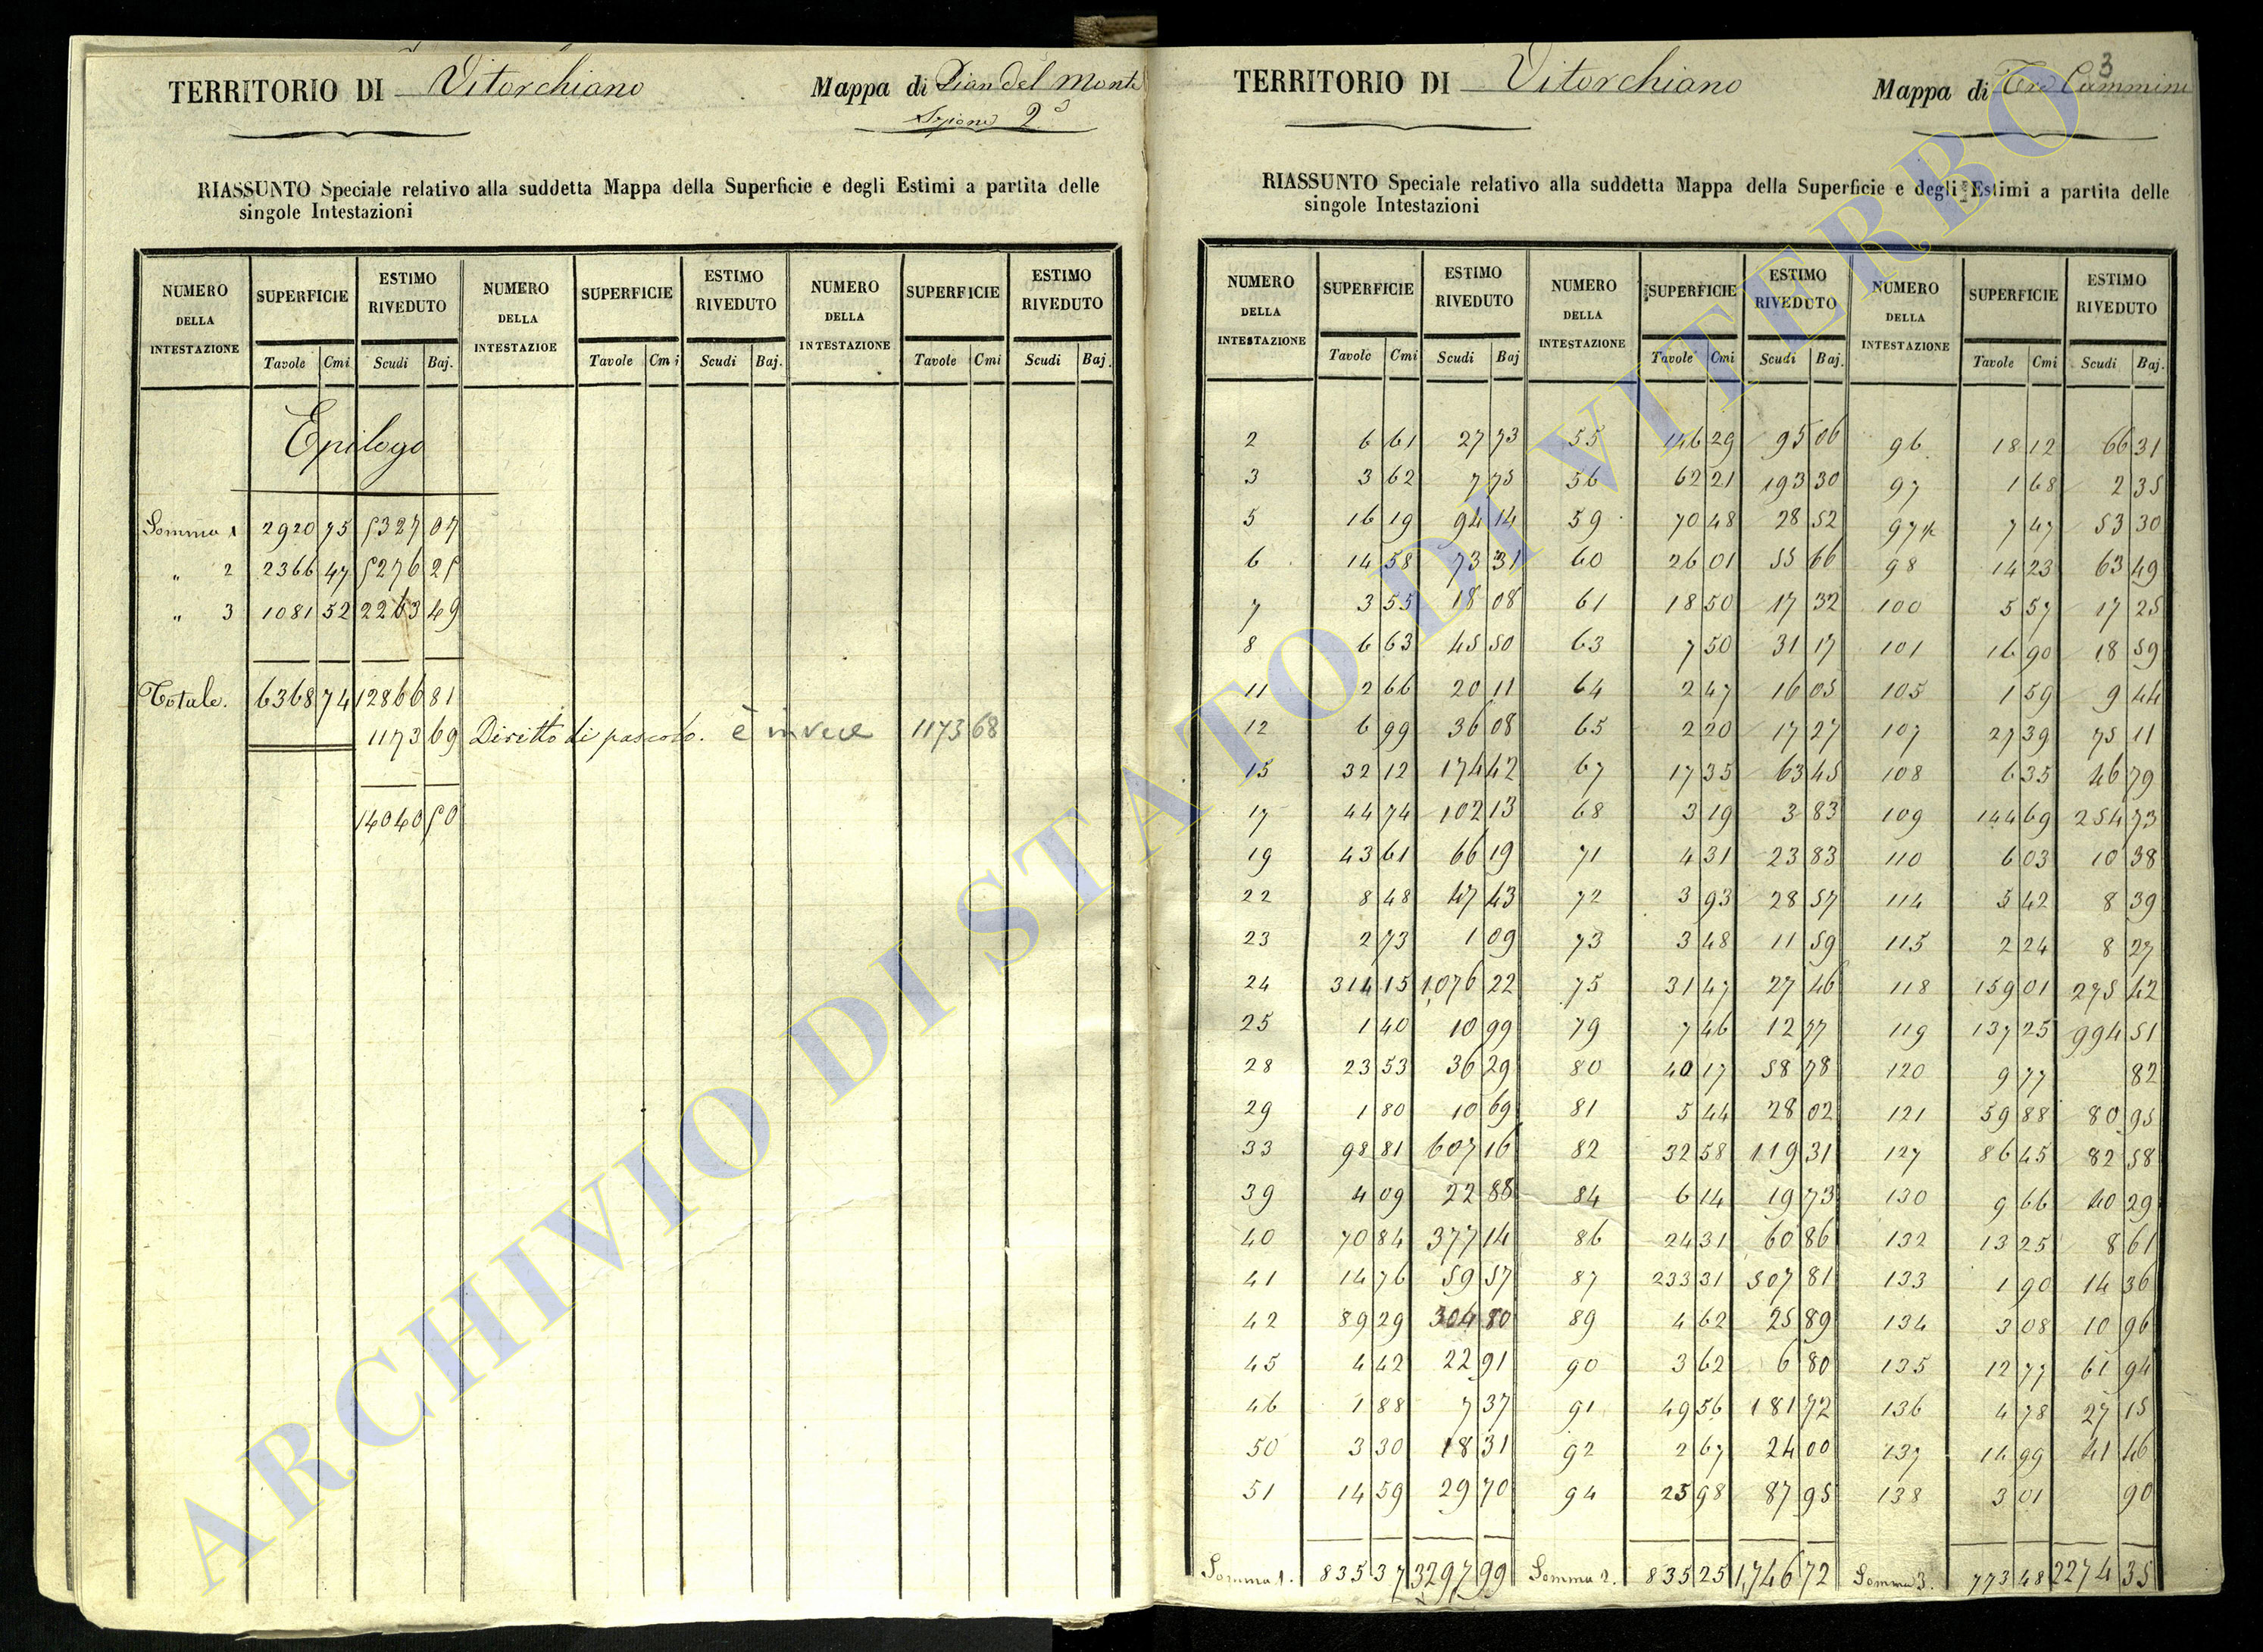 TERRITORIO DI Vitorchiano Mappa di Pian del Monte
Sezione 2ª
RIASSUNTO Speciale relativo alla suddetta Mappa della Superficie e degli Estimi a partita delle
singole Intestazioni
NUMERO DELLA INTESTAZIONE SUPERFICIE ESTIMO RIVEDUTO NUMERO DELLA INTESTAZIOE SUPERFICIE ESTIMO RIVEDUTO NUMERO DELLA INTESTAZIONE SUPERFICIE ESTIMO RIVEDUTO
Tavole Cmi Scudi Baj. Tavole Cmi Scudi Baj. Tavole Cmi Scudi Baj.
Epilogo
Somma 1 2920 75 5327 07
" 2 2366 47 5276 25
" 3 1081 52 2263 49
Totale. 6368 74 12866 81
1173 69 Diritto di pascolo. è invece 1173 68
14040 50
TERRITORIO DI Vitorchiano Mappa di Tre Cammini
3
RIASSUNTO Speciale relativo alla suddetta Mappa della Superficie e degli Estimi a partita delle
singole Intestazioni
NUMERO DELLA INTESTAZIONE SUPERFICIE ESTIMO RIVEDUTO NUMERO DELLA INTESTAZIONE SUPERFICIE ESTIMO RIVEDUTO NUMERO DELLA INTESTAZIONE SUPERFICIE ESTIMO RIVEDUTO
Tavole Cmi Scudi Baj Tavole Cmi Scudi Baj. Tavole Cmi Scudi Baj.
2 6 61 27 73 55 146 29 95 06 96 18 12 66 31
3 3 62 7 75 56 62 21 193 30 97 1 68 2 35
5 16 19 94 14 59 70 48 28 52 97½ 7 47 53 30
6 14 58 73 31 60 26 01 55 66 98 14 23 63 49
7 3 55 18 08 61 18 50 17 32 100 5 57 17 25
8 6 63 45 50 63 7 50 31 17 101 16 90 18 59
11 2 66 20 11 64 2 47 16 05 105 1 59 9 44
12 6 99 36 08 65 2 20 17 27 107 27 39 75 11
15 32 12 174 42 67 17 35 63 45 108 6 35 46 79
17 44 74 102 13 68 3 19 3 83 109 144 69 254 73
19 43 61 66 19 71 4 31 23 83 110 6 03 10 38
22 8 48 47 43 72 3 93 28 57 114 5 42 8 39
23 2 73 1 09 73 3 48 11 59 115 2 24 8 27
24 314 15 1076 22 75 31 47 27 46 118 159 01 275 42
25 1 40 10 99 79 7 46 12 77 119 137 25 994 51
28 23 53 36 29 80 40 17 58 78 120 9 77 82
29 1 80 10 69 81 5 44 28 02 121 59 88 80 95
33 98 81 607 16 82 32 58 119 31 127 86 45 82 58
39 4 09 22 88 84 6 14 19 73 130 9 66 40 29
40 70 84 377 14 86 24 31 60 86 132 13 25 8 61
41 14 76 59 57 87 233 31 507 81 133 1 90 14 36
42 89 29 304 80 89 4 62 25 89 134 3 08 10 96
45 4 42 22 91 90 3 62 6 80 135 12 77 61 94
46 1 88 7 37 91 49 56 181 72 136 4 78 27 15
50 3 30 18 31 92 2 67 24 00 137 14 99 41 46
51 14 59 29 70 94 25 98 87 95 138 3 01 90
Somma 1. 835 37 3297 99 Somma 2. 835 25 1,746 72 Somma 3. 773 48 2274 35
ARCHIVIO DI STATO DI VITERBO